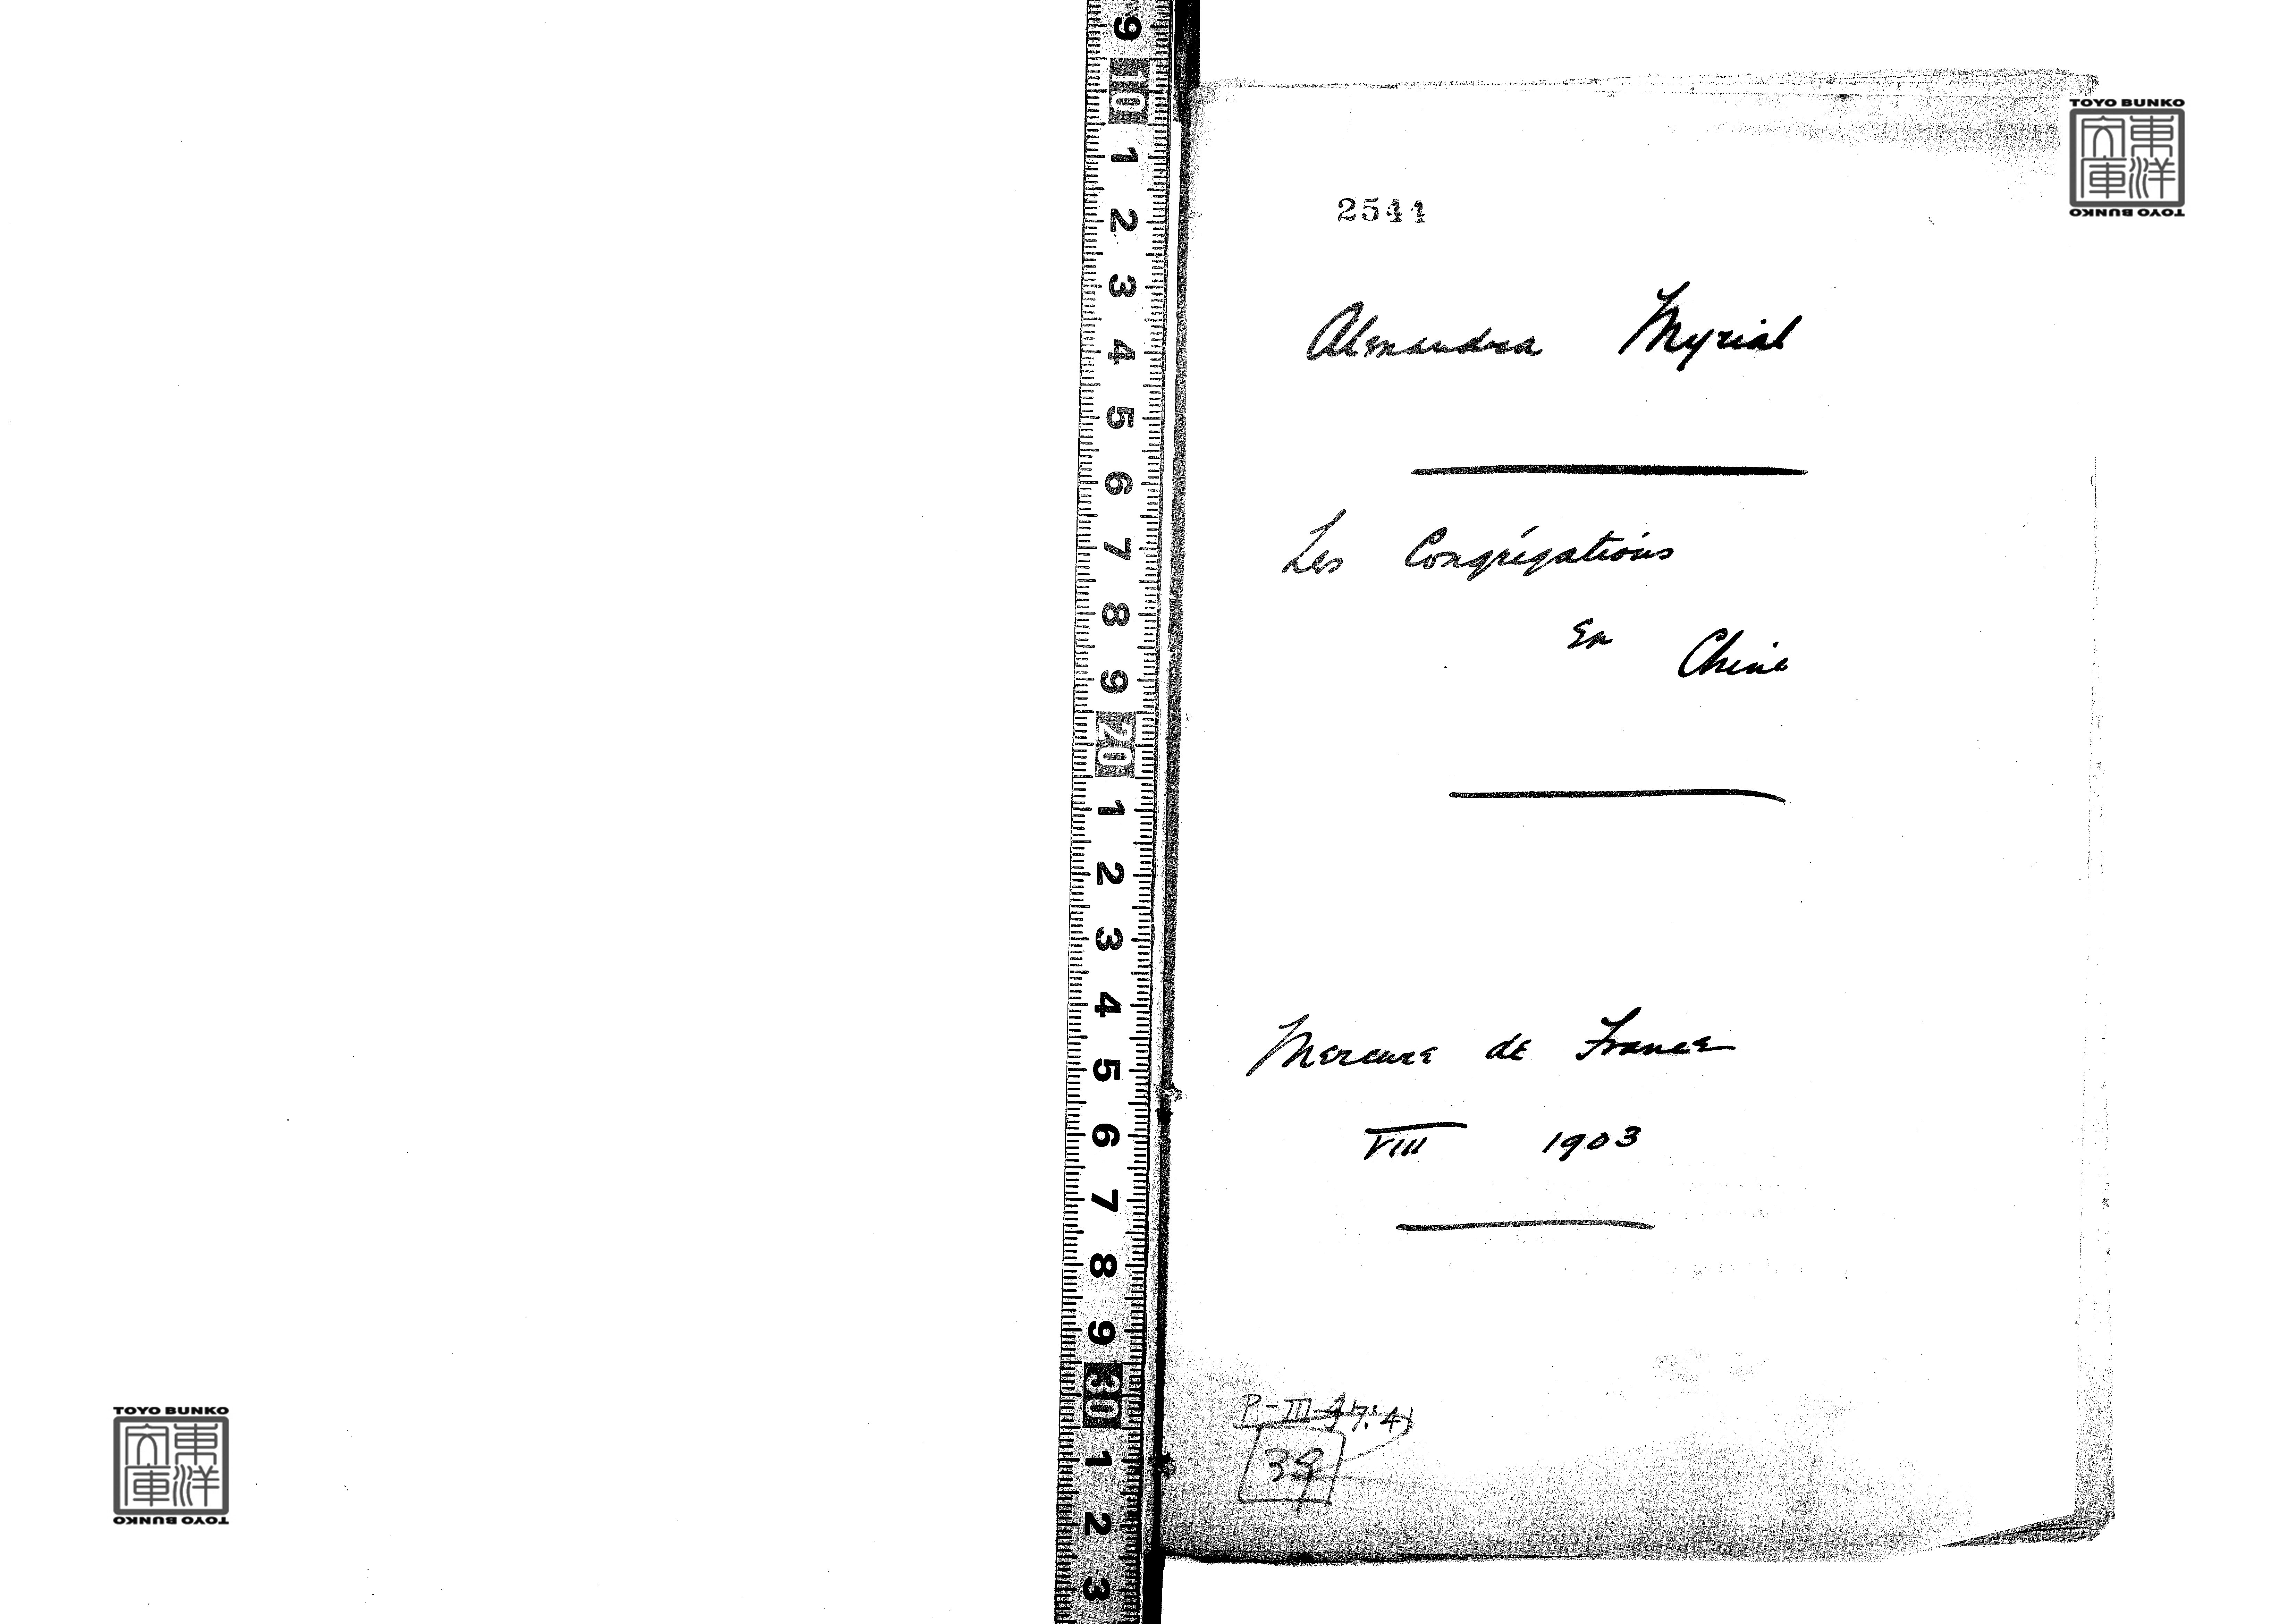 2544
Alexandra Myrial
Les Congrégations
en Chine
Mercure de France
VIII 1903
P-III-
TOYO BUNKO
東洋文庫
TOYO BUNKO
TOYO BUNKO
東洋文庫
TOYO BUNKO
9 10 1 2 3 4 5 6 7 8 9 20 1 2 3 4 5 6 7 8 9 30 1 2 3